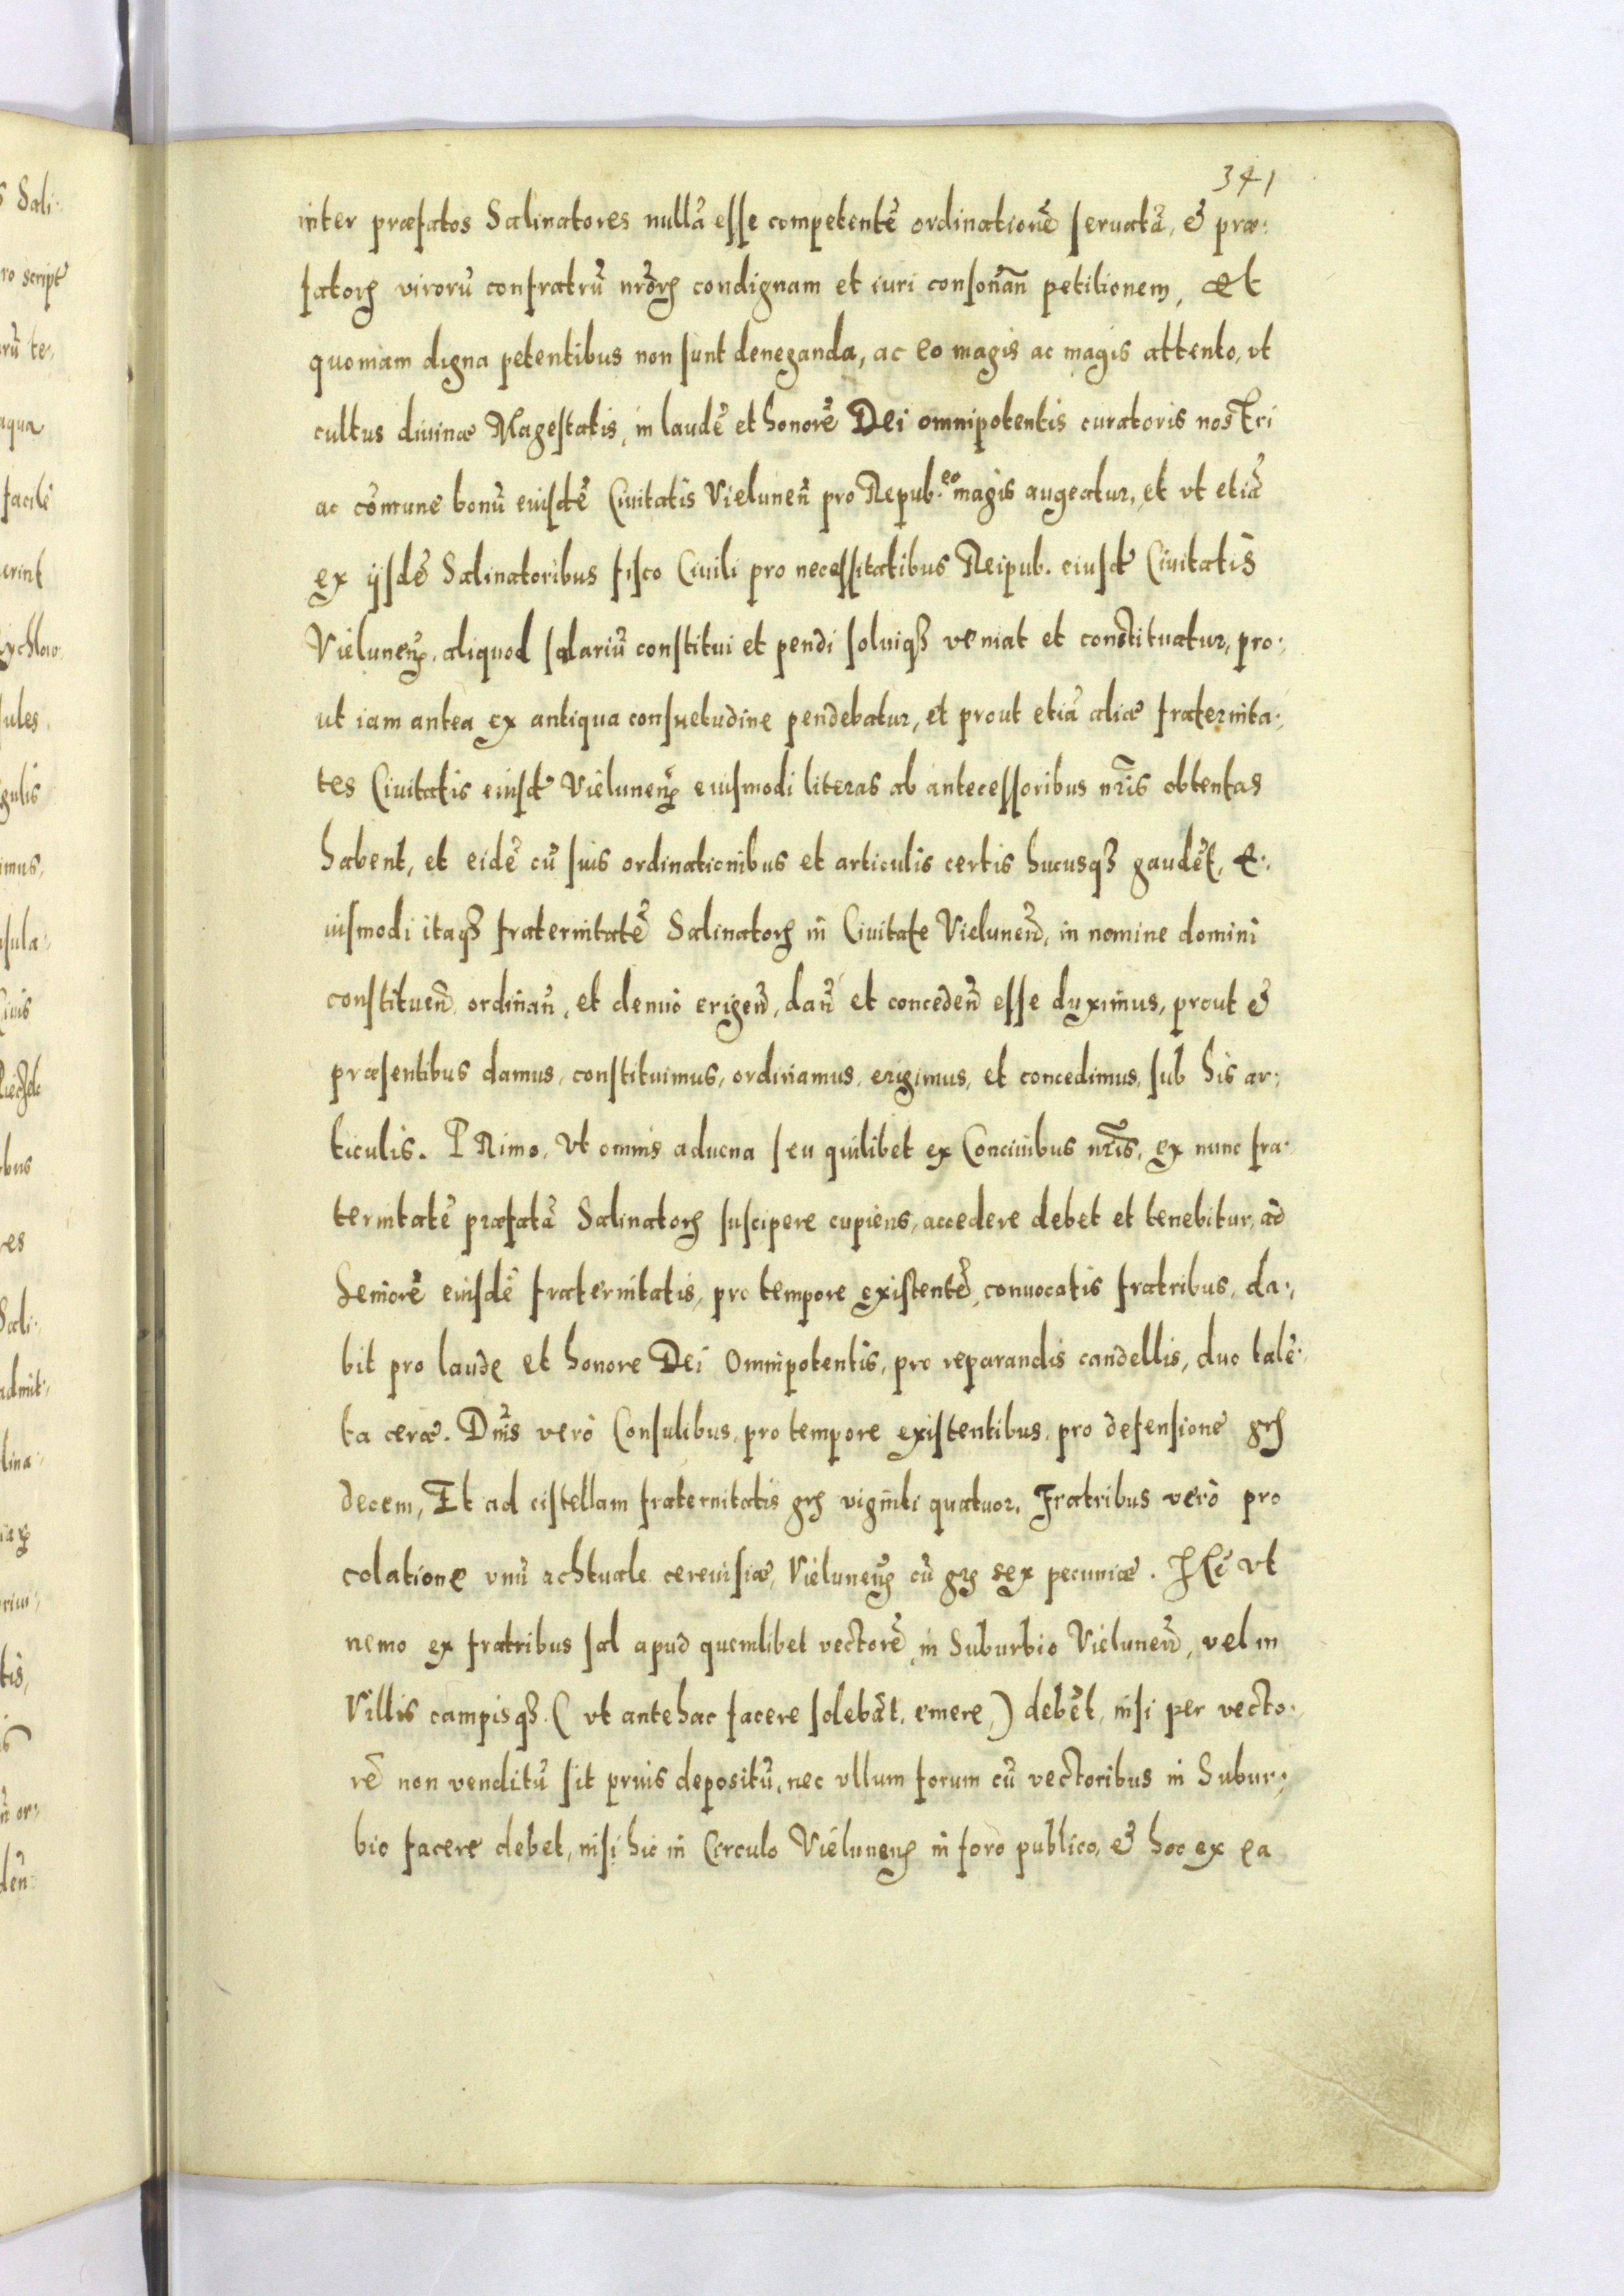 341
inter præfatos Salinatores nullã esse competentẽ ordinationẽ seruatã, & præ:
fatoꝝ virorũ confratrũ nr̃oꝝ condignam et iuri consonãn petitionem, Et
quoniam digna petentibus non sunt deneganda, ac eo magis ac magis attento, vt
cultus diuinæ Magestatis, in laudẽ et honorẽ Dei omnipotentis curatoris nostri
ac cõmune bonũ eiusdẽ Ciuitatis Vielunen̄ pro Repub. eo magis augeatur, et vt etiã
ex ijsdẽ Salinatoribus fisco Ciuili pro necessitatibus Reipub. eiusd̃ Ciuitatis
Vielunen̄, aliquod salariũ constitui et pendi soluiqꝫ veniat et constituatur, pro:
ut iam antea ex antiqua consuetudine pendebatur, et prout etiã aliæ fraternita:
tes Ciuitatis eiusd̃ Vielunen̄ eiusmodi literas ab antecessoribus nr̃is obtentas
habent, et eidẽ cũ suis ordinationibus et articulis certis hucusqꝫ gaudẽt, E:
iusmodi itaqꝫ fraternitatẽ Salinatoꝝ in Ciuitate Vielunen̄, in nomine domini
constituen̄ ordinan̄, et denuò erigen̄, dan̄ et conceden̄ esse duximus, prout &
præsentibus damus, constituimus, ordinamus, erigimus, et concedimus, sub his ar:
ticulis. PRimo, Vt omnis aduena seu quilibet ex Conciuibus nr̃is, ex nunc fra:
ternitatẽ præfatã Salinatoꝝ suscipere cupiens, accedere debet et tenebitur, ad
Seniorẽ eiusdẽ fraternitatis, pro tempore existentẽ, conuocatis fratribus, da:
bit pro laude et honore Dei Omnipotentis, pro reparandis candellis, duo talẽ:
ta ceræ. Dñis verò Consulibus, pro tempore existentibus, pro defensione gꝝ
decem, Et ad cistellam fraternitatis gꝝ viginti quatuor. Fratribus verò pro
colatione vnũ achtuale cereuisiæ, Vielunen̄ cũ gꝝ sex pecuniæ. Itẽ Vt
nemo ex fratribus sal apud quemlibet vectorẽ in Suburbio Vielunen̄, vel in
Villis campisqꝫ. ( vt antehac facere solebãt, emere,) debẽt, nisi per vecto:
rẽ non venditũ sit prius depositũ, nec vllum forum cũ vectoribus in Subur:
bio facere debet, nisi hic in Circulo Vielunen̄ in foro publico, & hoc ex ea